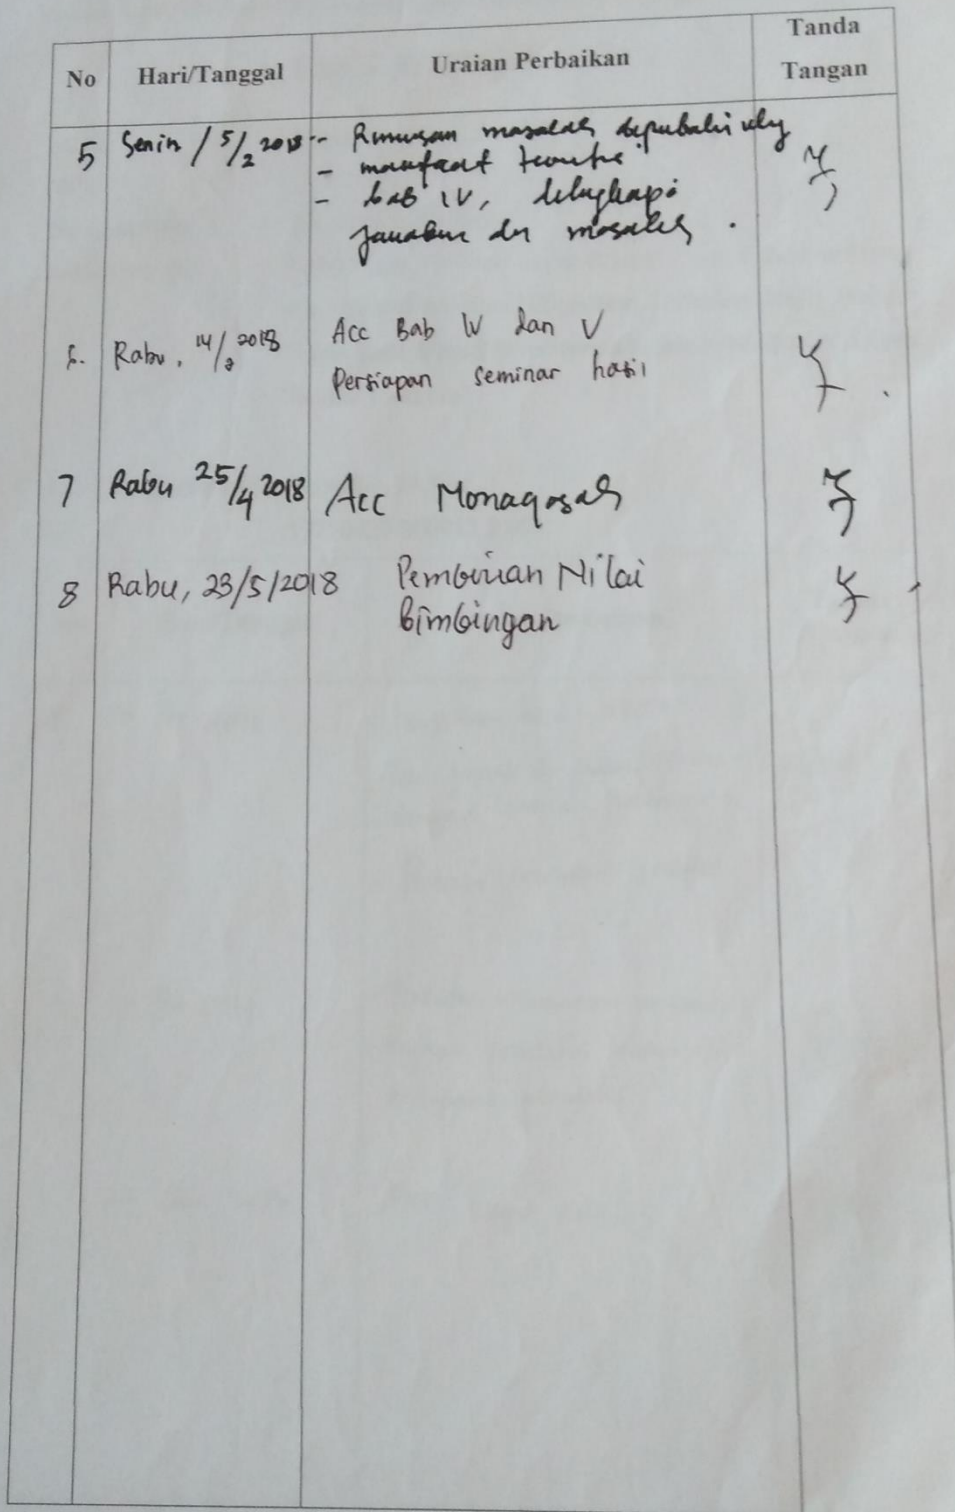 No Hari/Tanggal Uraian Perbaikan Tanda Tangan
5 Senin / 5/2 2018 - Rumusan masalah
- manfaat teoritis
- bab IV, dilengkapi
jawaban dr masalah.
6. Rabu, 14/2 2018 Acc Bab IV dan V
Persiapan seminar hasil
7 Rabu 25/4 2018 Acc Monaqasah
8 Rabu, 23/5/2018 Pemberian Nilai
Bimbingan